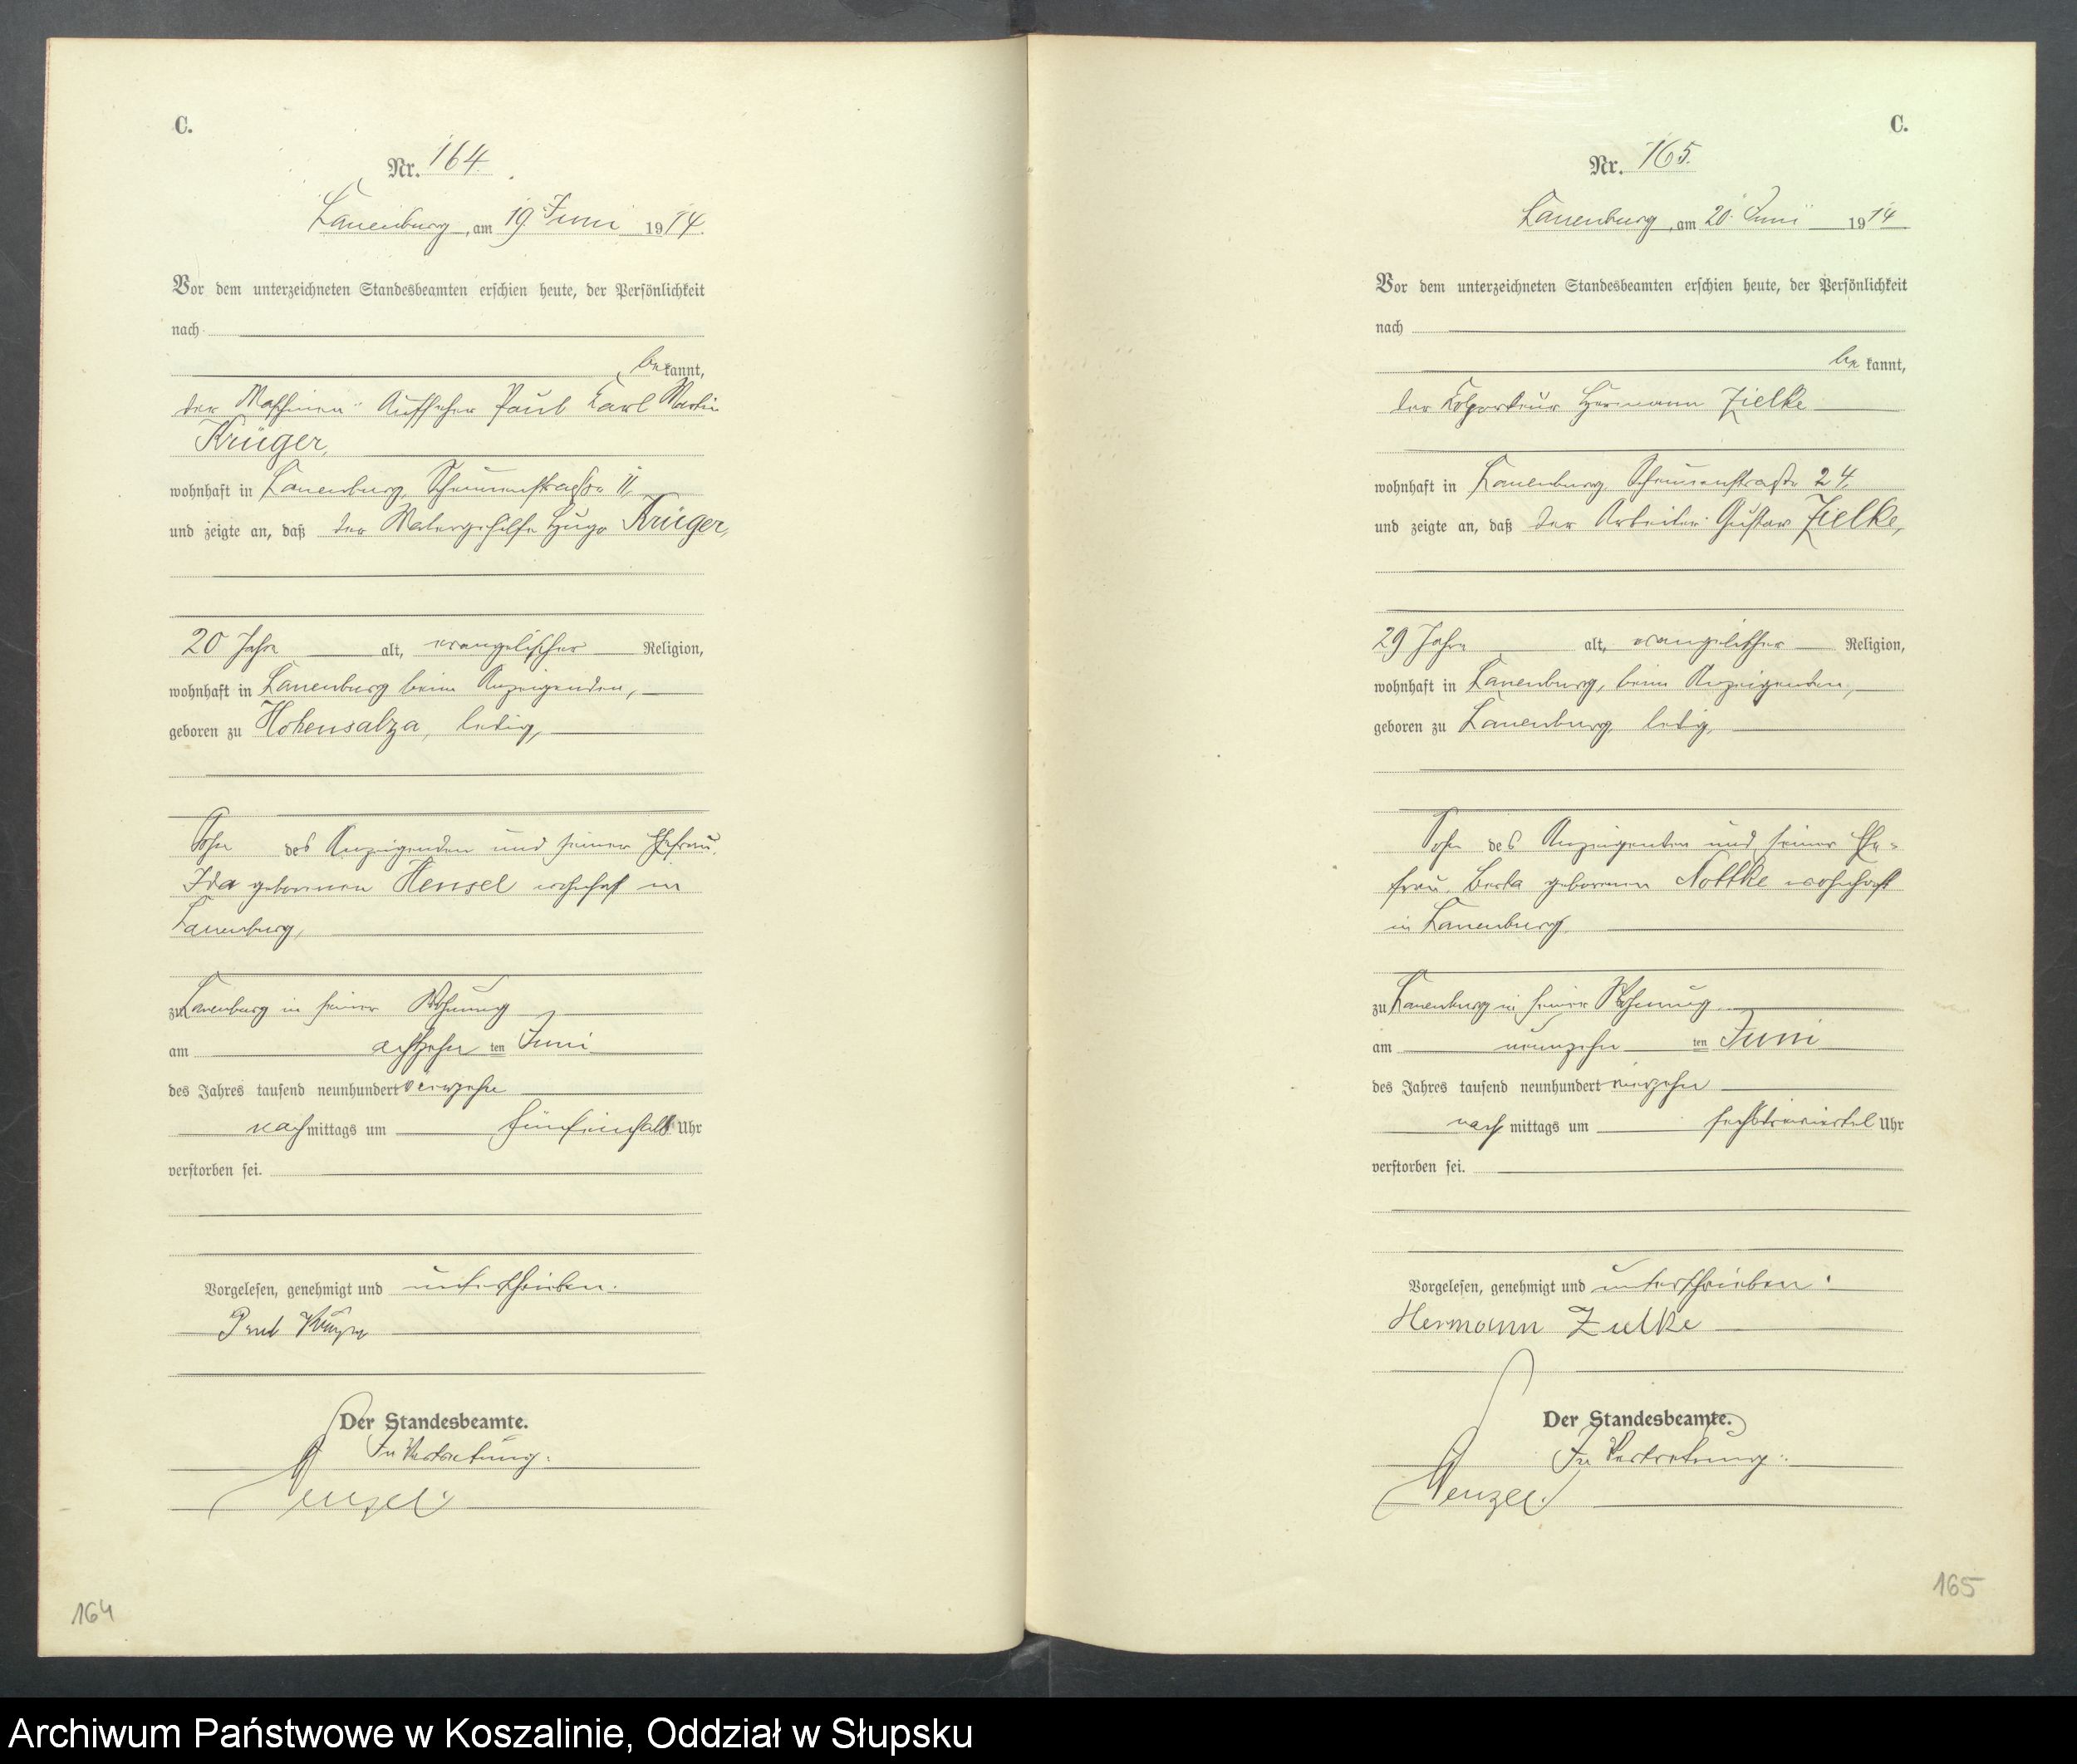 C.
Nr. 164.
Lauenburg, am 19. Juni 1914.
Vor dem unterzeichneten Standesbeamten erschien heute, der Persönlichkeit
nach
bekannt,
der Maschinen-Aufseher Paul Karl Martin
Krüger,
wohnhaft in Lauenburg, Scheunenstraße 11,
und zeigte an, daß der Malergehilfe Hugo Krüger,
20 Jahre alt, evangelischer Religion,
wohnhaft in Lauenburg beim Anzeigenden,
geboren zu Hohensalza, ledig,
Sohn des Anzeigenden und seiner Ehefrau
Ida geborenen Hensel wohnhaft in
Lauenburg,
zu Lauenburg in seiner Wohnung
am achtzehnten Juni
des Jahres tausend neunhundert vierzehn
nachmittags um fünfeinhalb Uhr
verstorben sei.
Vorgelesen, genehmigt und unterschrieben.
Paul Krüger
Der Standesbeamte.
In Vertretung:
Wenzel.
164
C.
Nr. 165.
Lauenburg, am 20. Juni 1914
Vor dem unterzeichneten Standesbeamten erschien heute, der Persönlichkeit
nach
bekannt,
der Kolporteur Hermann Zielke
wohnhaft in Lauenburg, Scheunenstraße 24,
und zeigte an, daß der Arbeiter Gustav Zielke,
29 Jahre alt, evangelischer Religion,
wohnhaft in Lauenburg, beim Anzeigenden,
geboren zu Lauenburg, ledig,
Sohn des Anzeigenden und seiner Ehe-
frau Berta geborenen Nottke wohnhaft
in Lauenburg,
zu Lauenburg in seiner Wohnung
am neunzehnten Juni
des Jahres tausend neunhundert vierzehn
nachmittags um sechsdreiviertel Uhr
verstorben sei.
Vorgelesen, genehmigt und unterschrieben.
Hermann Zielke
Der Standesbeamte.
In Vertretung:
Wenzel.
165
Archiwum Państwowe w Koszalinie, Oddział w Słupsku